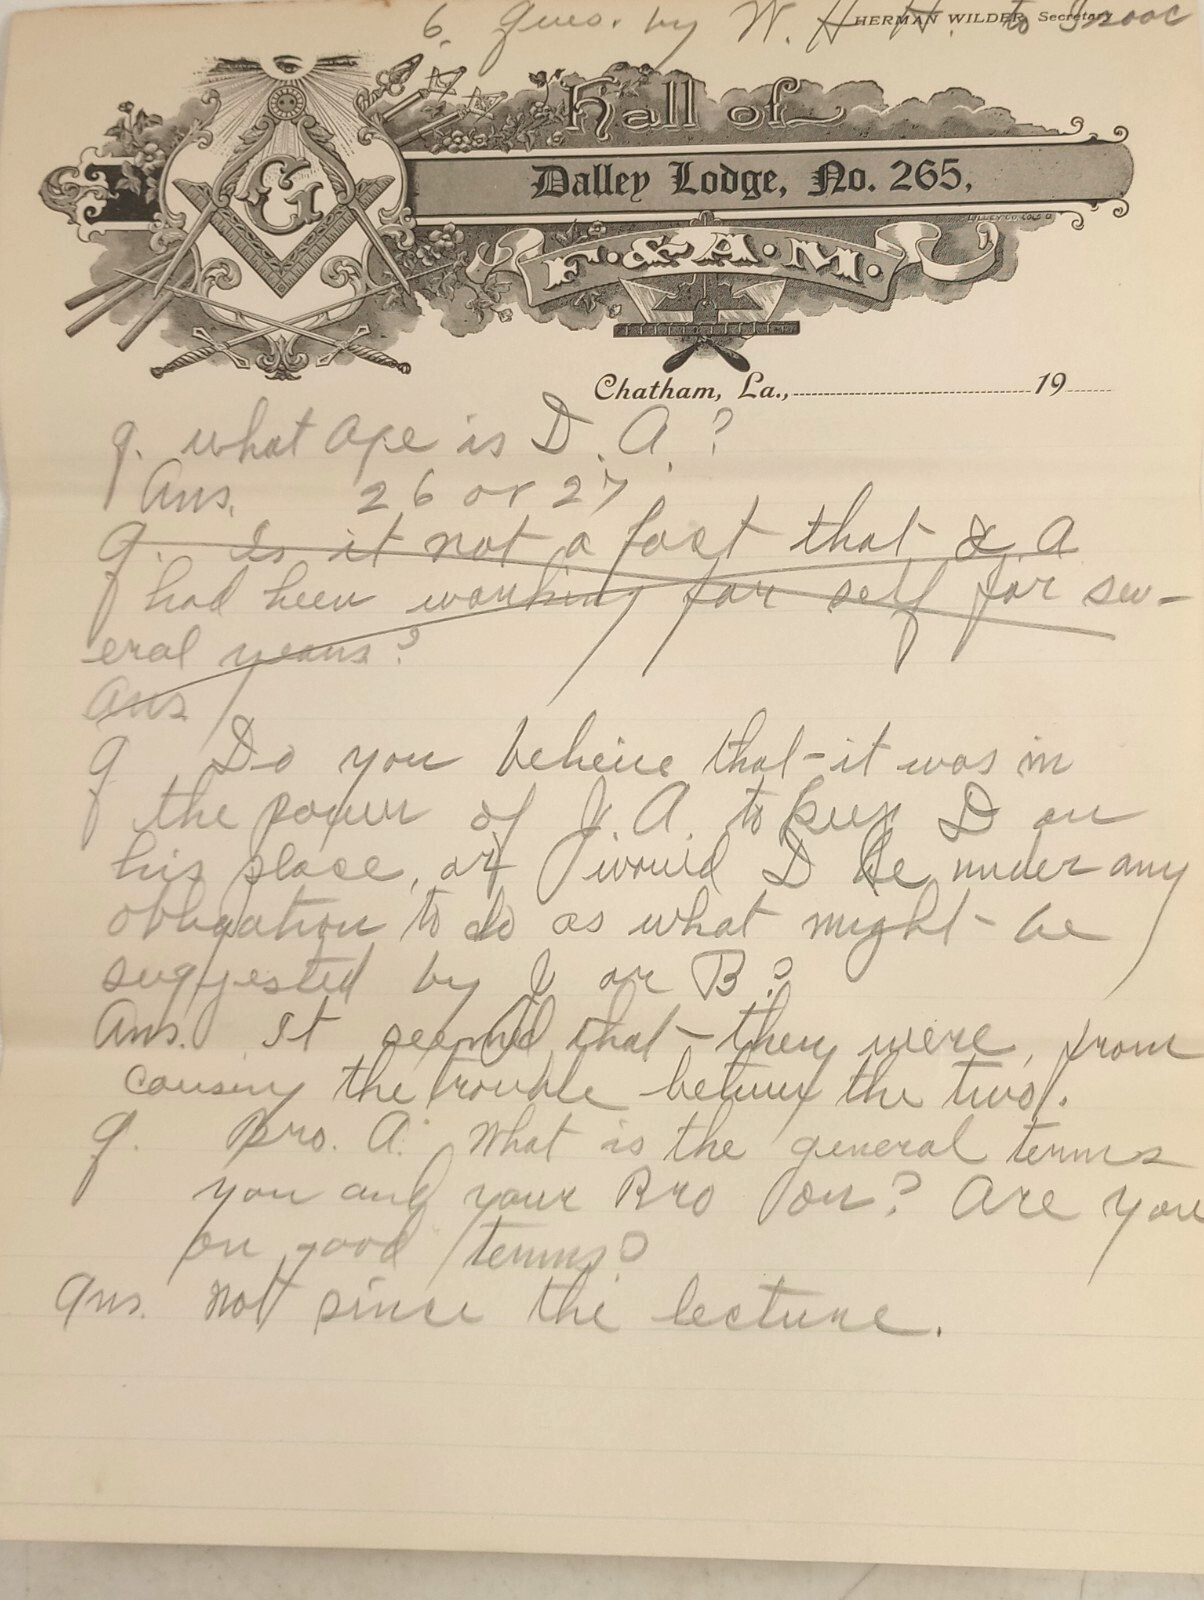 6. Ques. by W. H. H. to Isaac
HERMAN WILDER, Secretary
Hall of
Dalley Lodge, No. 265,
F. & A. M.
G
Chatham, La., 19
q. what age is D. A.?
Ans. 26 or 27
q. Is it not a fact that D. A
had been working for self for sev-
eral years?
Ans
q Do you believe that it was in
the power of J. A. to keep D on
his place, or would D be under any
obligation to do as what might be
suggested by J or B?
Ans. It seemed that they were, from
causing the trouble between the two.
q. Bro. A. What is the general terms
you and your Bro on? Are you
on good terms?
Ans. not since the lecture.